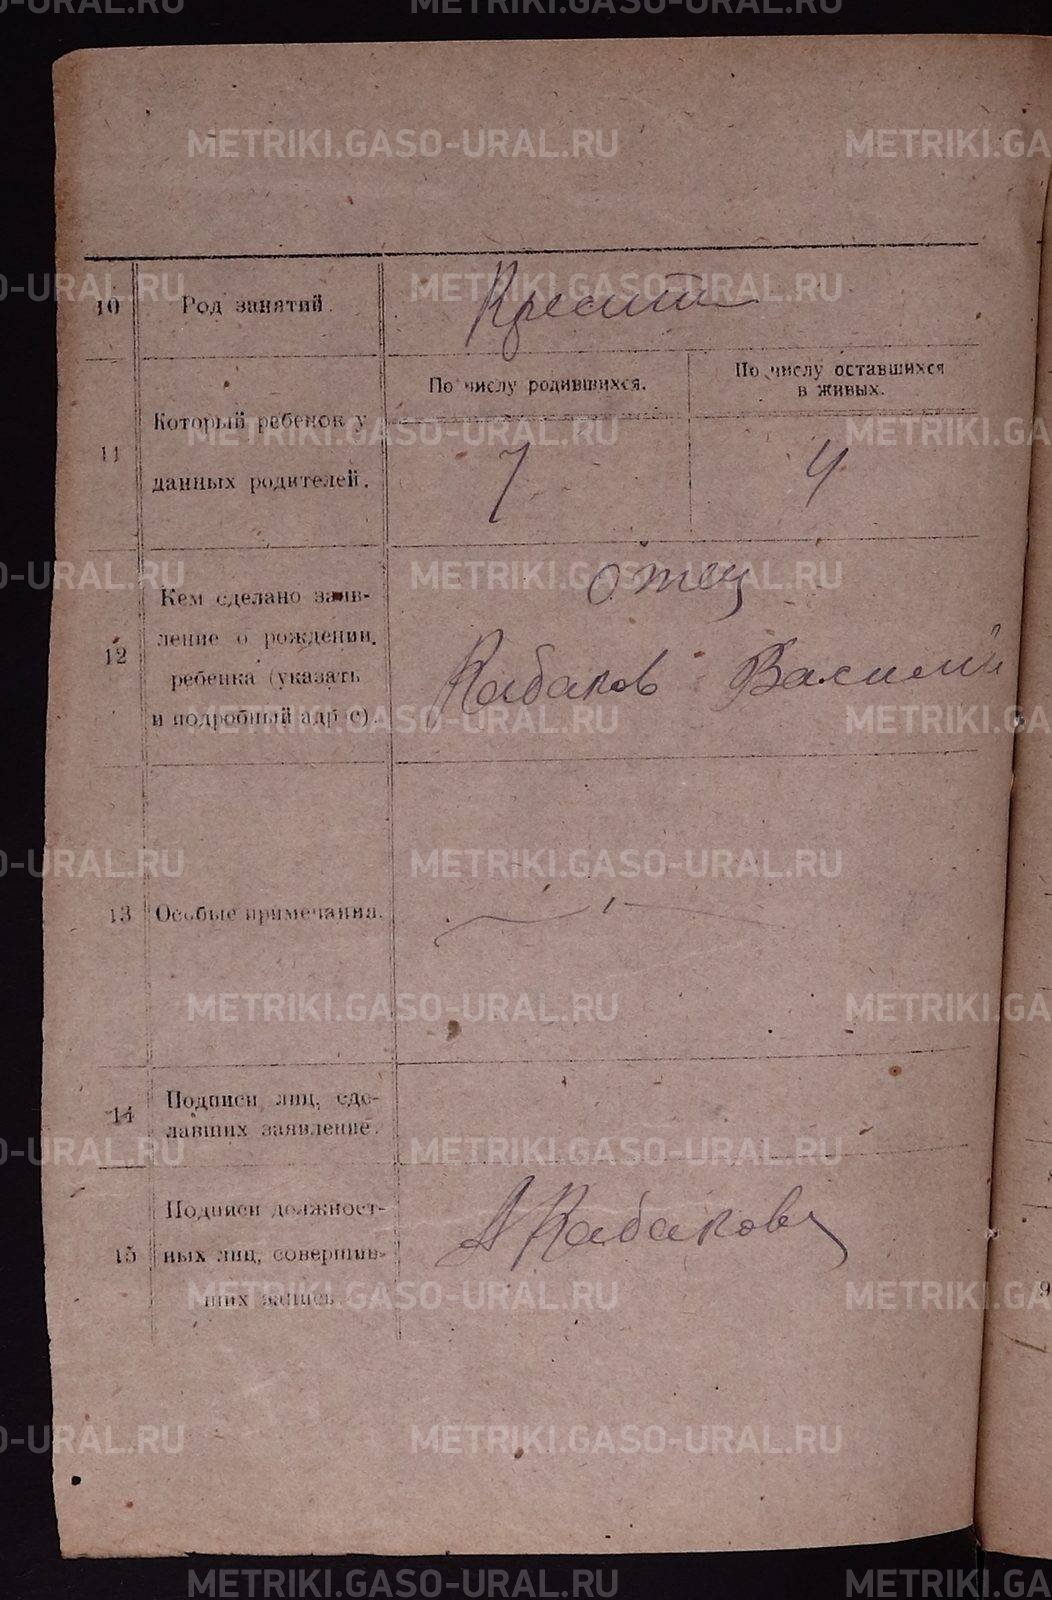 10 Род занятий. Крестьян
11 Который ребенок у данных родителей.
По числу родившихся. По числу оставшихся
в живых.
7 4
12 Кем сделано заяв-
ление о рождении
ребенка (указать
и подробный адрес).
отец
Кабаков Василий
13 Особые примечания.
14 Подписи лиц, сде-
лавших заявление.
15 Подписи должност-
ных лиц, совершив-
ших запись.
А Кабаков
METRIKI.GASO-URAL.RU